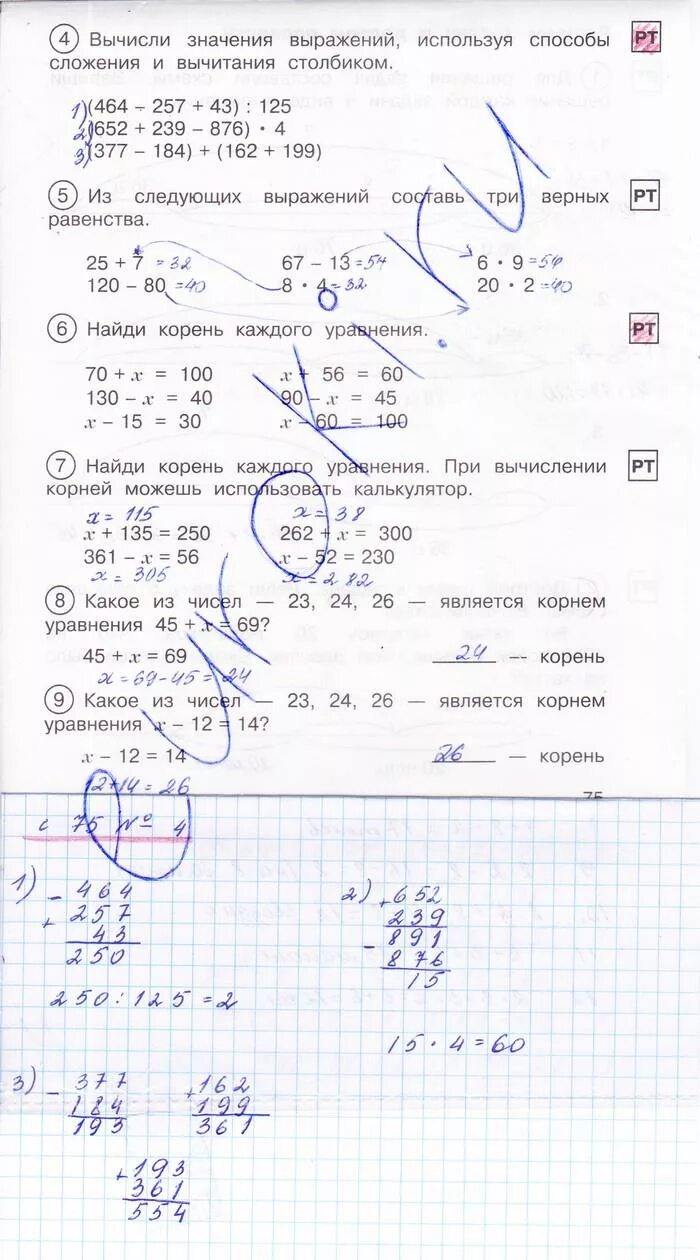 4 Вычисли значения выражений, используя способы
сложения и вычитания столбиком.
РТ
1) (464 – 257 + 43) : 125
2) (652 + 239 – 876) · 4
3) (377 – 184) + (162 + 199)
5 Из следующих выражений составь три верных
равенства.
РТ
25 + 7 =32 67 – 13 =54 6 · 9 =54
120 – 80 =40 8 · 4 =32 20 · 2 =40
6 Найди корень каждого уравнения.
РТ
70 + x = 100 x + 56 = 60
130 – x = 40 90 – x = 45
x – 15 = 30 x – 60 = 100
7 Найди корень каждого уравнения. При вычислении
корней можешь использовать калькулятор.
РТ
x = 115 x = 38
x + 135 = 250 262 + x = 300
361 – x = 56 x – 52 = 230
x = 305 x = 282
8 Какое из чисел — 23, 24, 26 — является корнем
уравнения 45 + x = 69?
45 + x = 69 24 — корень
x = 69-45 = 24
9 Какое из чисел — 23, 24, 26 — является корнем
уравнения x – 12 = 14?
x – 12 = 14 26 — корень
12+14 = 26
75
с 75 № 4
1) - 464
+ 257
43
250
250 : 125 = 2
2) + 652
239
- 891
876
15
15 · 4 = 60
3) - 377
184
193
+ 162
199
361
+ 193
361
554